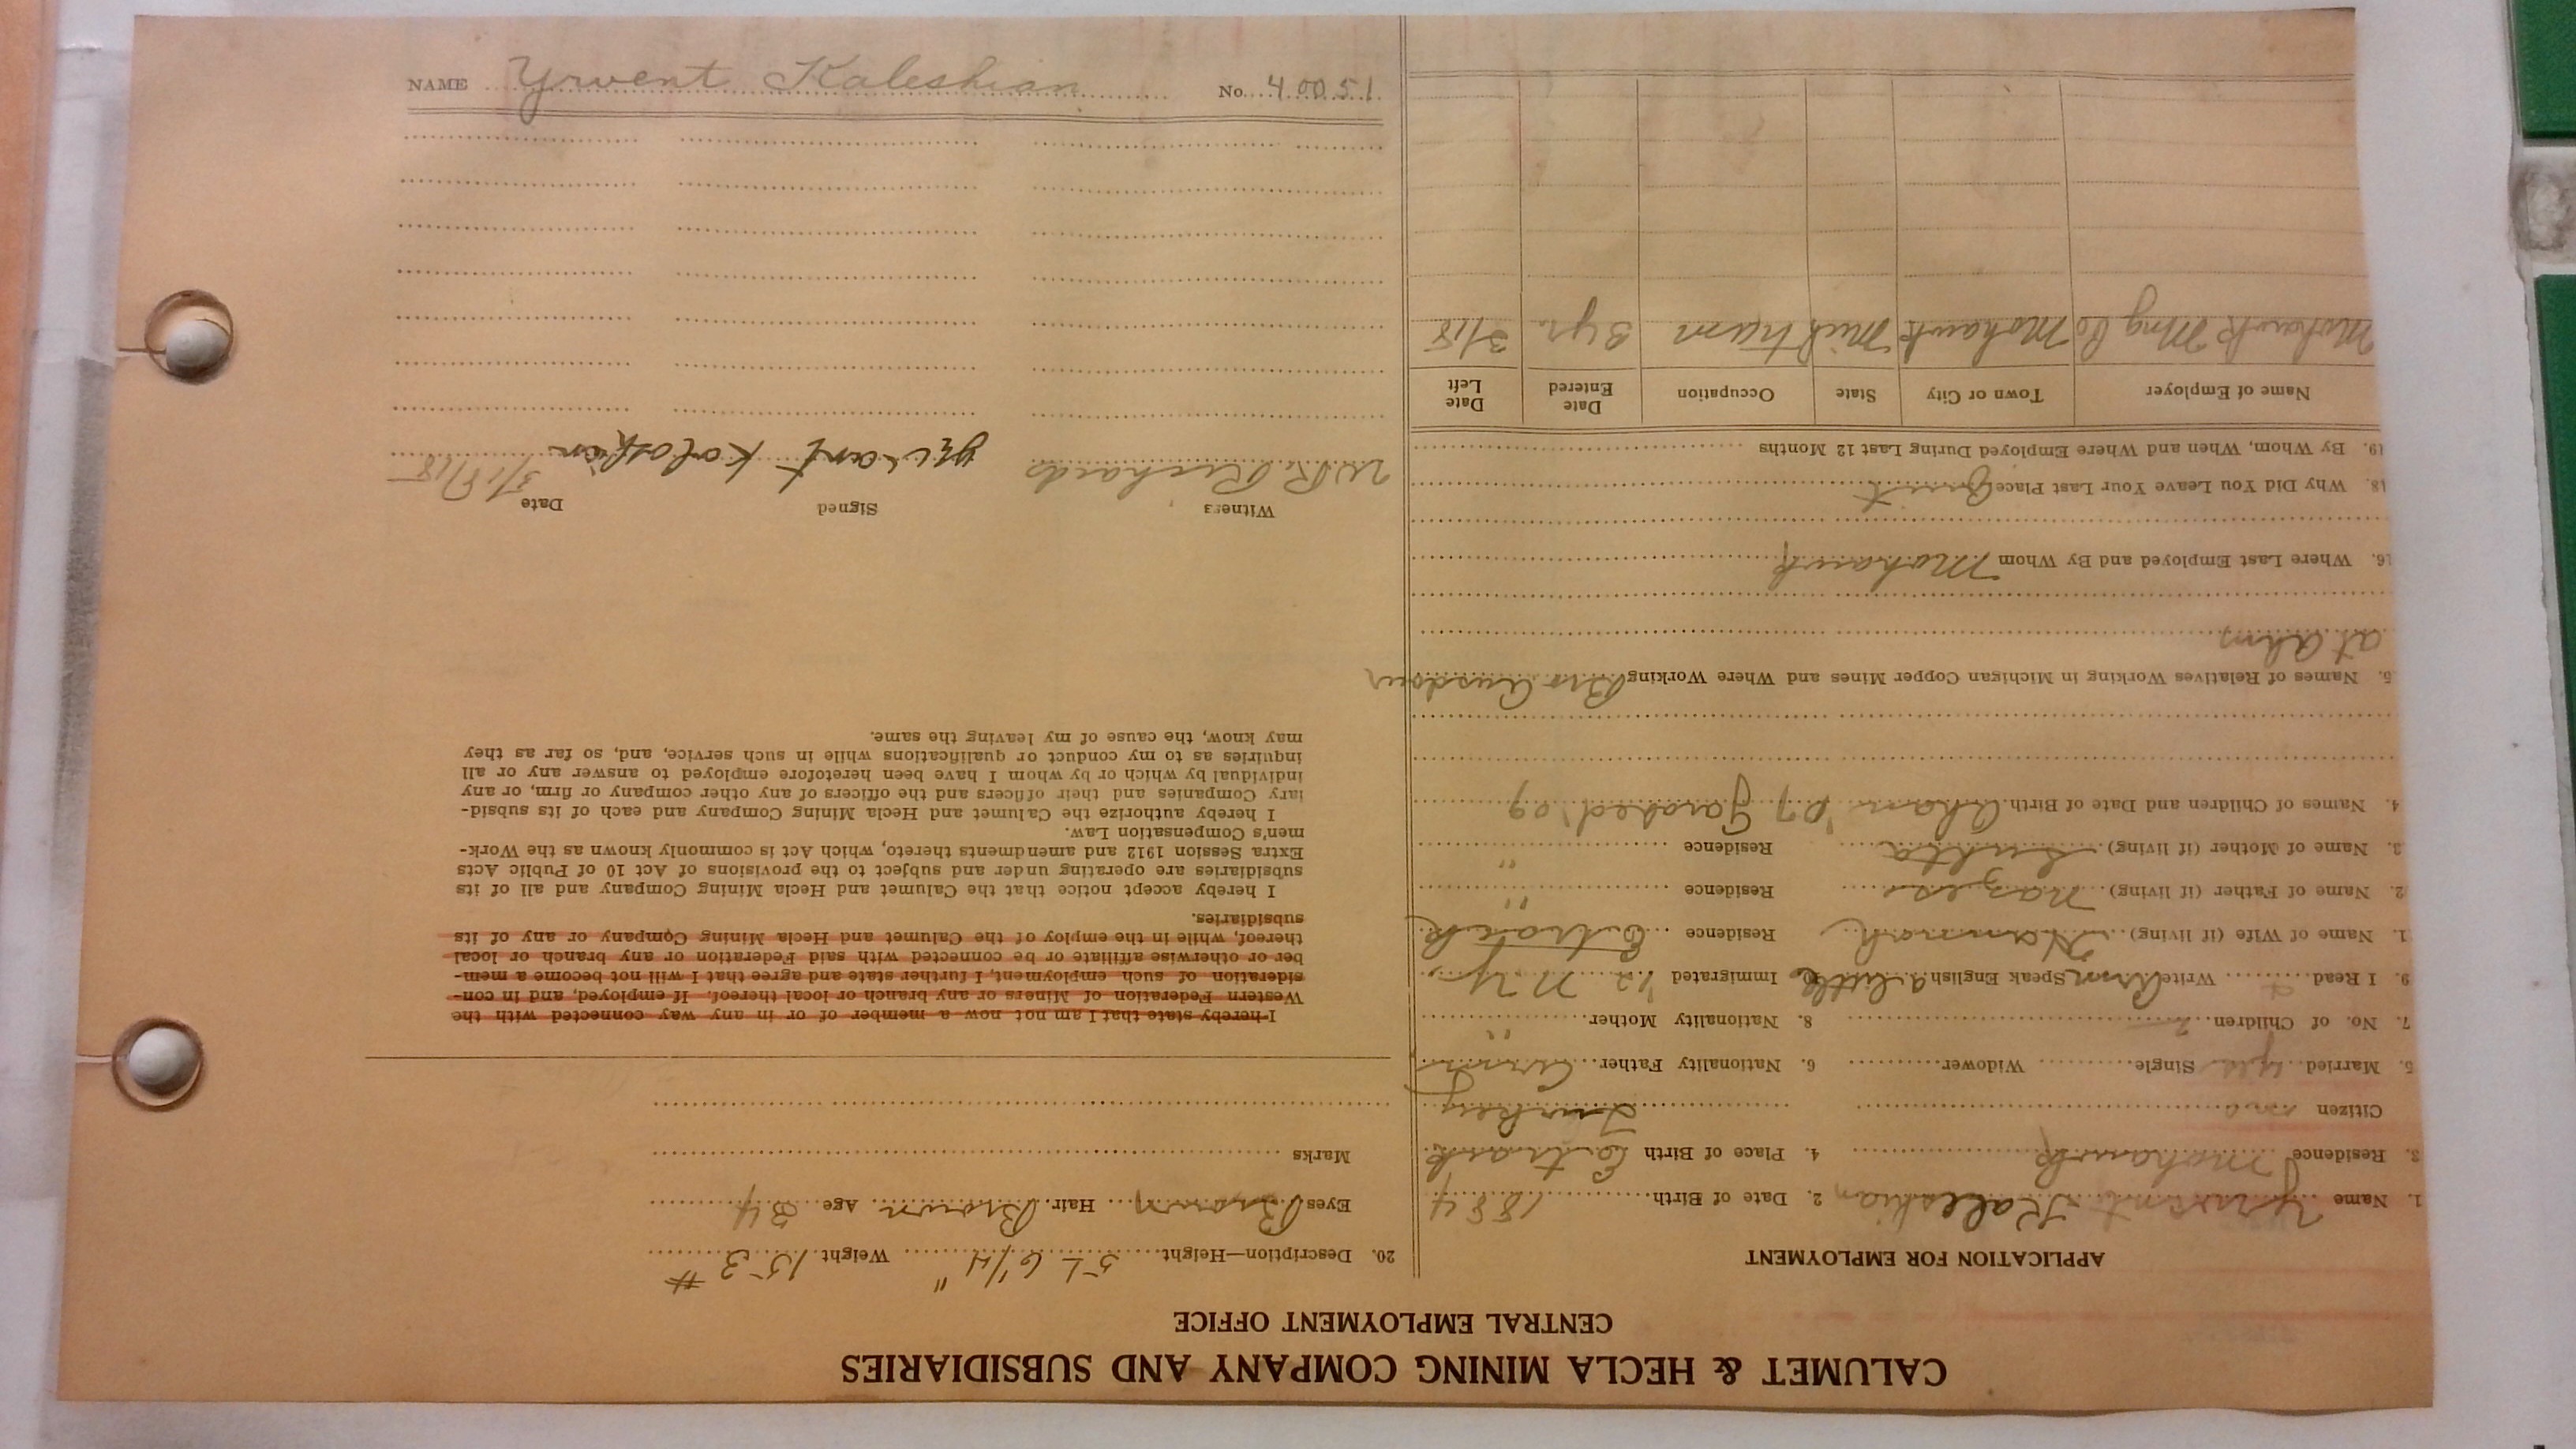 CALUMET & HECLA MINING COMPANY AND SUBSIDIARIES
CENTRAL EMPLOYMENT OFFICE
APPLICATION FOR EMPLOYMENT
1. Name Yrvent Kaleshian 2. Date of Birth 1884
3. Residence Mohawk 4. Place of Birth
Citizen no Turkey
5. Married yes Single Widower 6. Nationality Father Arm
7. No. of Children 2 8. Nationality Mother "
9. I Read Write Arm Speak English a little Immigrated '12 N.Y.
1. Name of Wife (if living) Hannah Residence
2. Name of Father (if living) Residence "
3. Name of Mother (if living) Sulta Residence "
4. Names of Children and Date of Birth '07 Garabed '09
5. Names of Relatives Working in Michigan Copper Mines and Where Working Bro
at Ahm
16. Where Last Employed and By Whom Mohawk
18. Why Did You Leave Your Last Place Quit
19. By Whom, When and Where Employed During Last 12 Months
Name of Employer Town or City State Occupation Date Entered Date Left
Mohawk Mng Co Mohawk Mich tram 3 yr. 3/18
20. Description—Height 5' 6 1/4" Weight 153 #
Eyes Brown Hair Brown Age 34
Marks
I hereby state that I am not now a member of or in any way connected with the
Western Federation of Miners or any branch or local thereof. If employed, and in con-
sideration of such employment, I further state and agree that I will not become a mem-
ber or otherwise affiliate or be connected with said Federation or any branch or local
thereof, while in the employ of the Calumet and Hecla Mining Company or any of its
subsidiaries.
I hereby accept notice that the Calumet and Hecla Mining Company and all of its
subsidiaries are operating under and subject to the provisions of Act 10 of Public Acts
Extra Session 1912 and amendments thereto, which Act is commonly known as the Work-
men's Compensation Law.
I hereby authorize the Calumet and Hecla Mining Company and each of its subsid-
iary Companies and their officers and the officers of any other company or firm, or any
individual by which or by whom I have been heretofore employed to answer any or all
inquiries as to my conduct or qualifications while in such service, and, so far as they
may know, the cause of my leaving the same.
Witness Signed Date
W.R. Richards 3/18/18
NAME Yrvent Kaleshian No. 40051